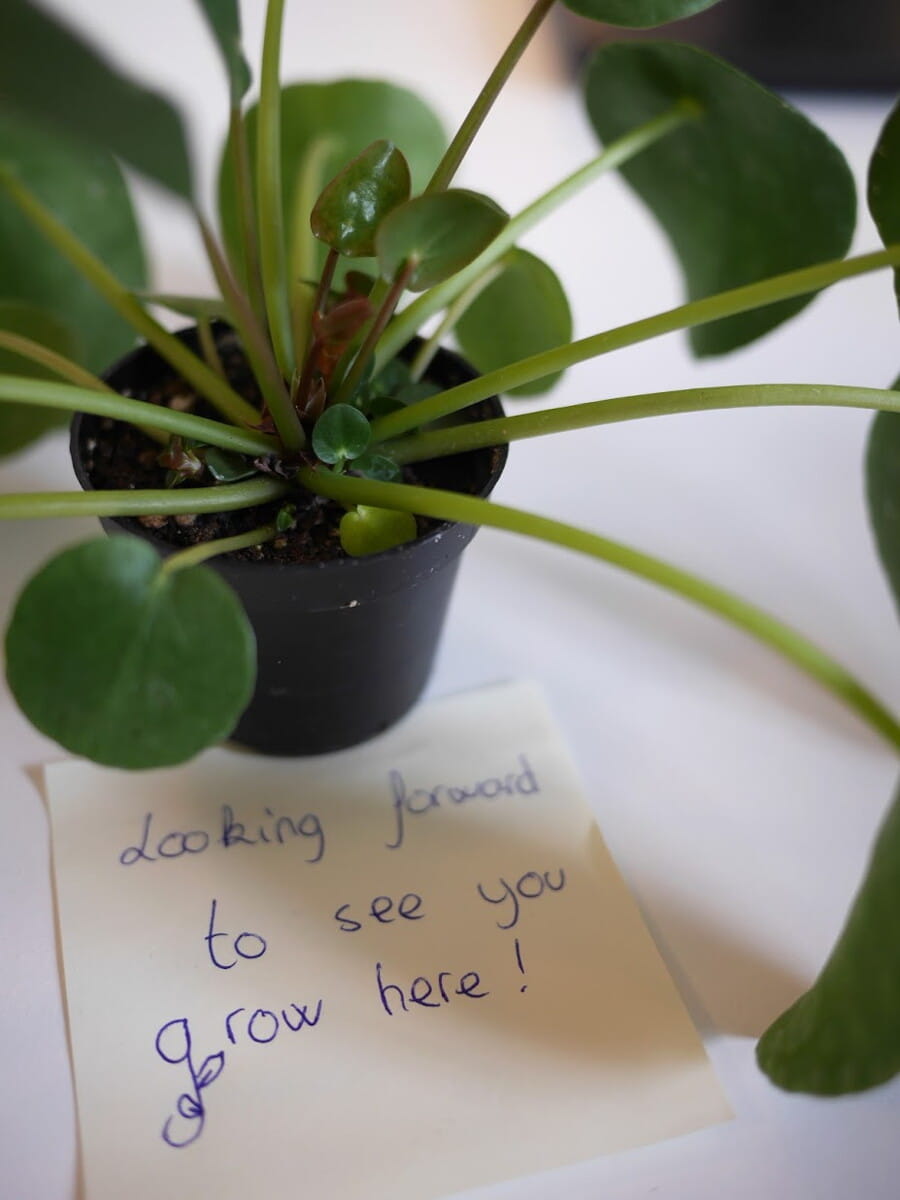 Looking forward
to see you
grow here!